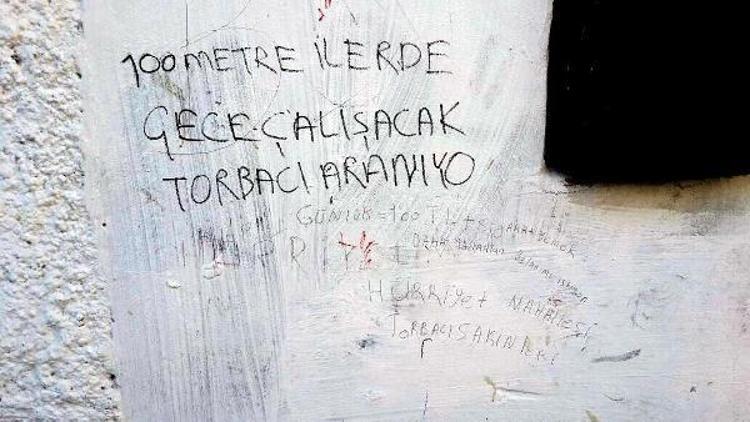 100 METRE İLERDE
GECE ÇALIŞACAK
TORBACI ARANIYO
GÜNLÜK = 100 TL +
HÜRRİYET MAHALLESİ
TORBACI SAKİNLERİ